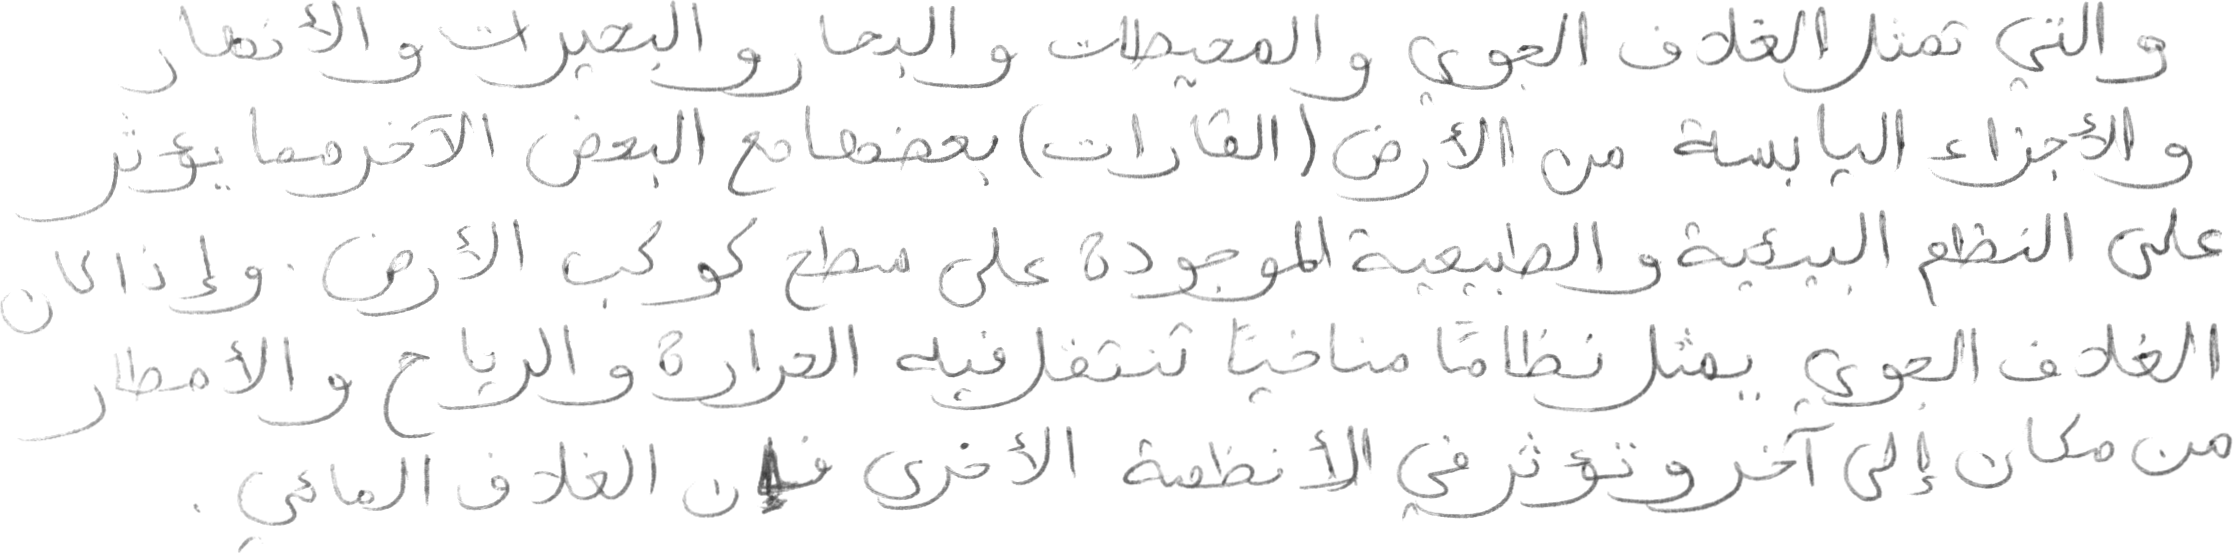 والتي تمثل الغلاف الجوي والمحيطات والبحار والبحيرات والأنهار
والأجزاء اليابسة من الأرض (القارات) بعضها مع البعض الآخر مما يؤثر
على النظم البيئية والطبيعية الموجودة على سطح كوكب الأرض. وإذا كان
الغلاف الجوي يمثل نظامًا مناخيًا تنتقل فيه الحرارة والرياح والأمطار
من مكان إلى آخر وتؤثر في الأنظمة الأخرى فإن الغلاف المائي.